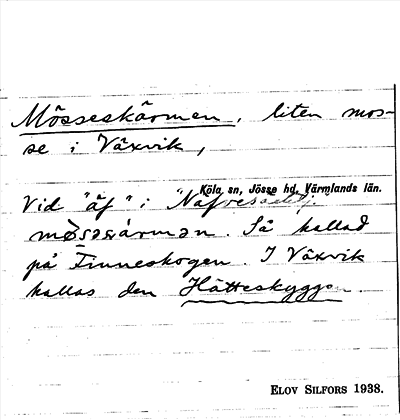 Mösseskärmen, liten mos-
se i Växvik,
Köla sn, Jösse hd, Värmlands län.
Vid "äf" i
mø̀səsɛårmən. Så kallad
på Finneskogen. I Växvik
kallas den Hätteskyggen.
ELOV SILFORS 1938.